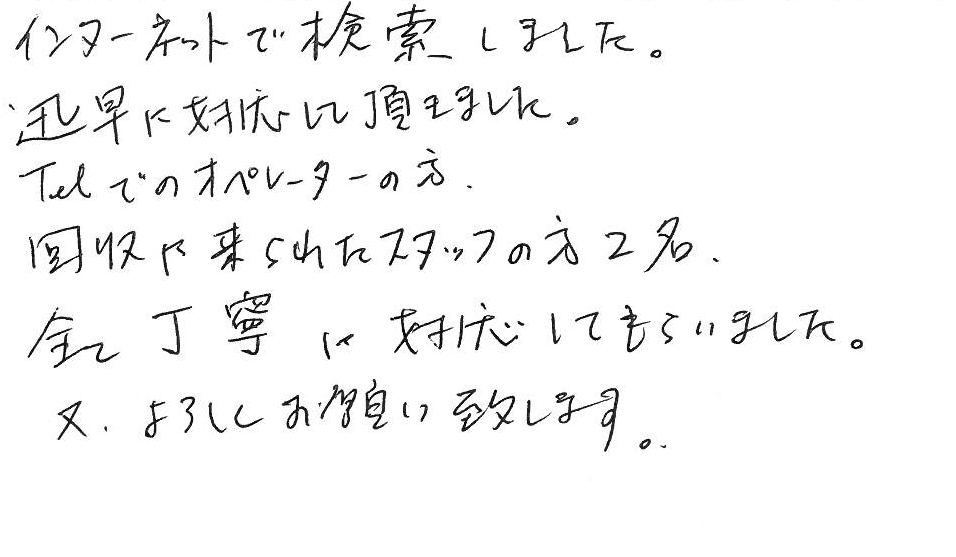 インターネットで検索しました。
迅早に対応して頂きました。
Telでのオペレーターの方.
回収に来られたスタッフの方2名.
全て丁寧に対応してもらいました。
又、よろしくお願い致します。